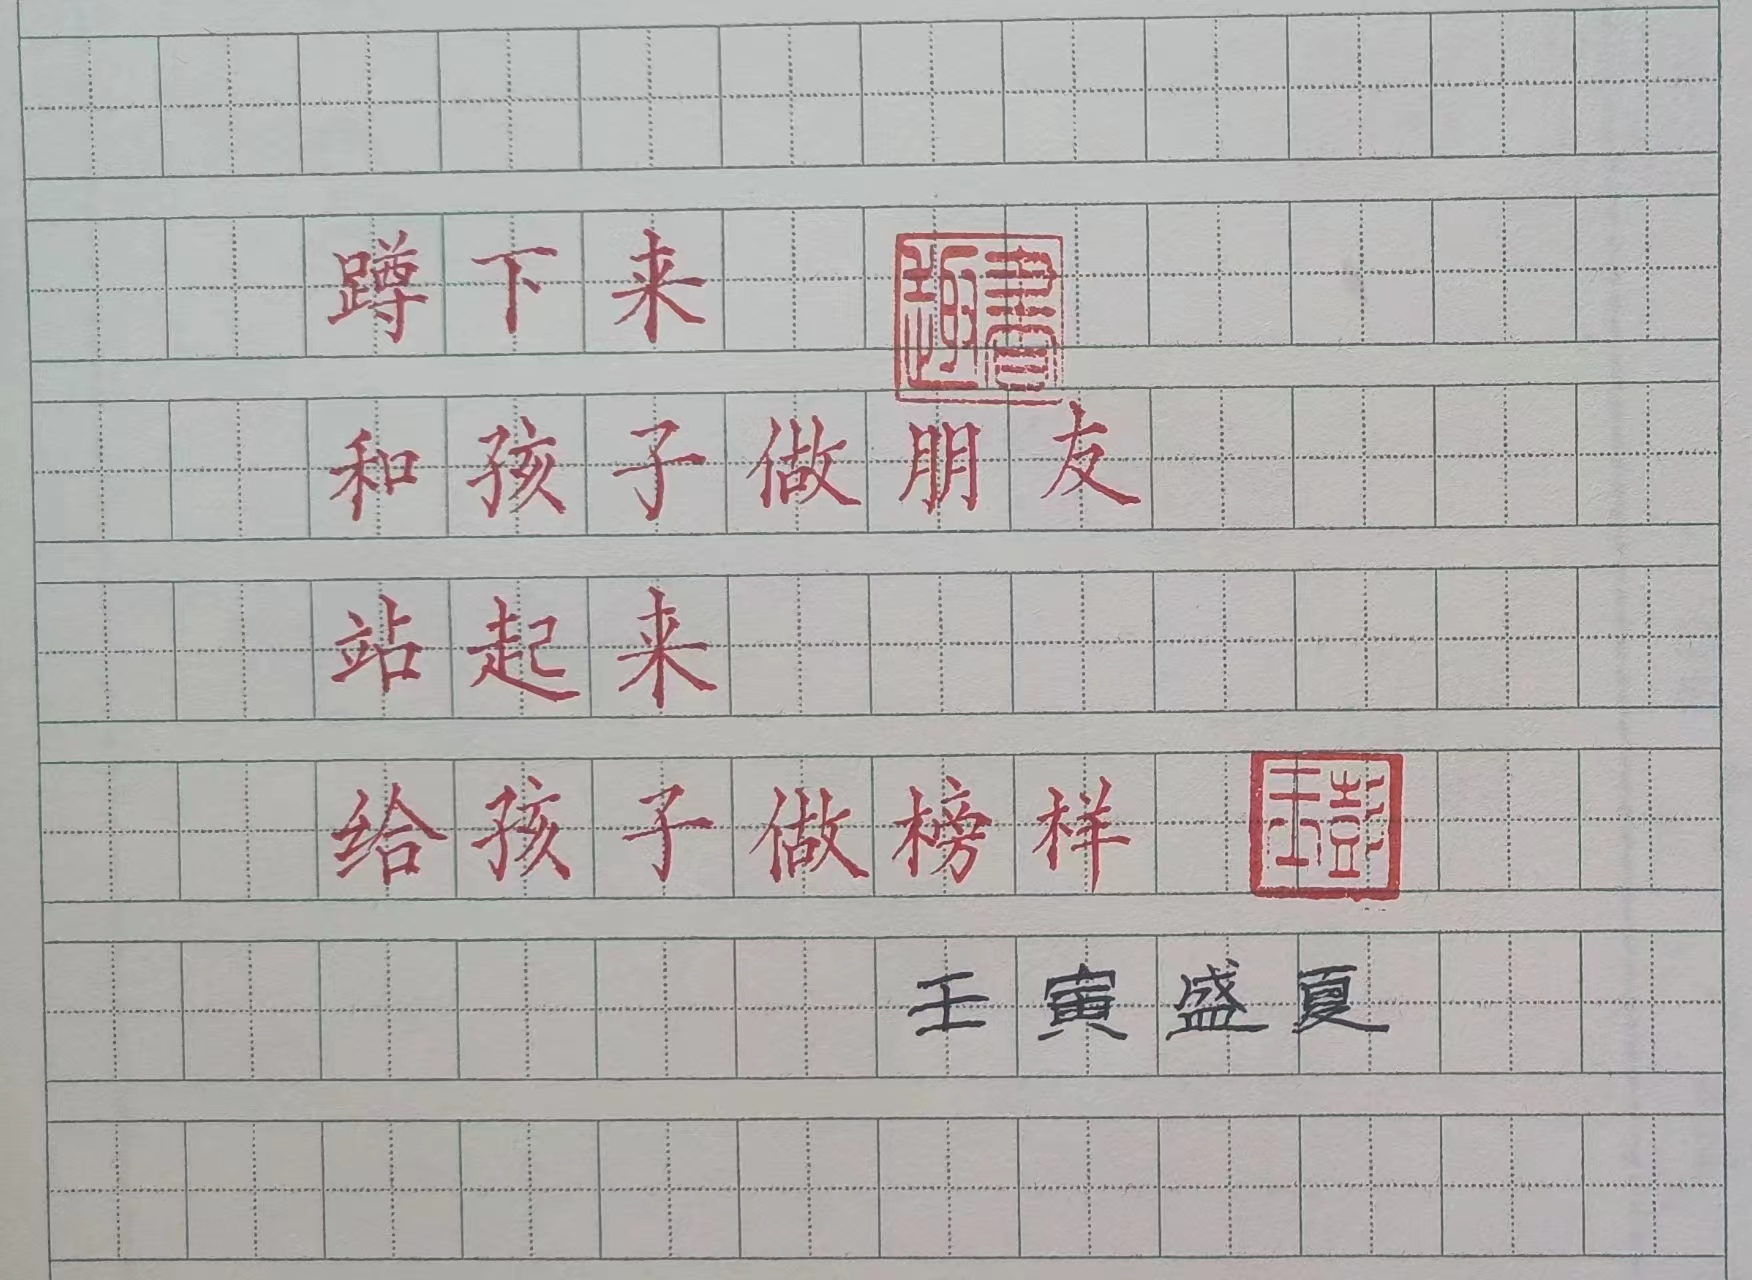 蹲下来
書趣
和孩子做朋友
站起来
给孩子做榜样
壬寅盛夏